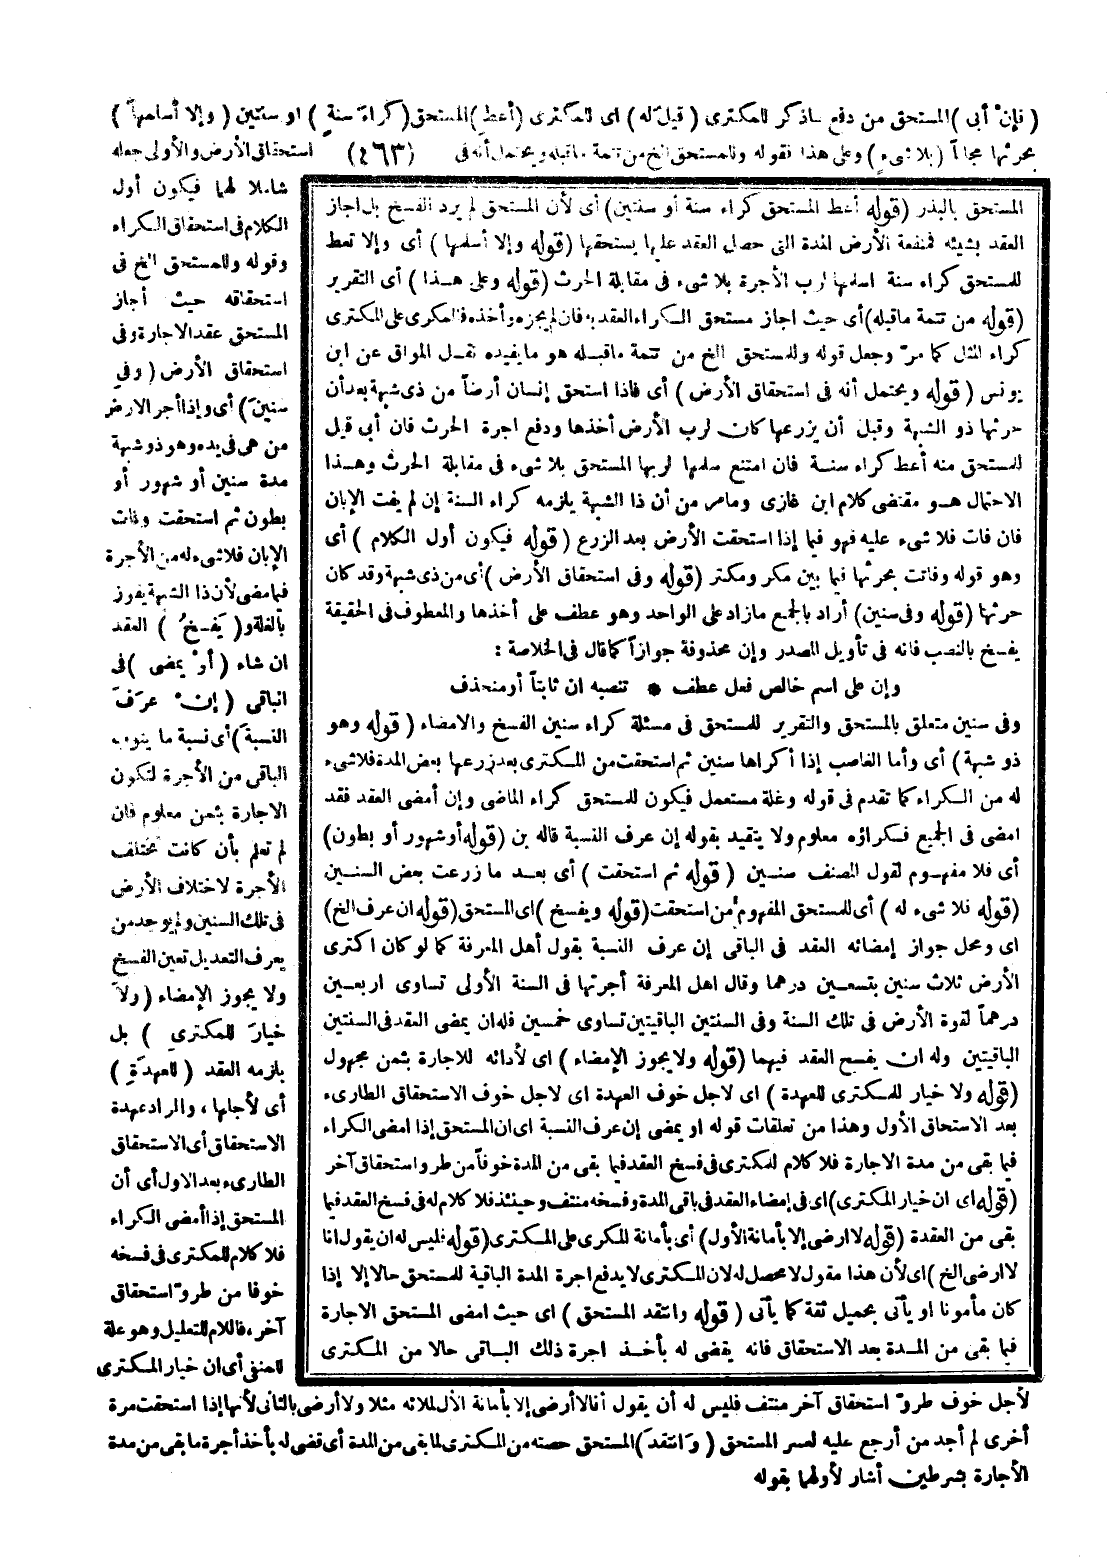 ( فإنْ أبى ) المستحق من دفع ماذكر للمكترى ( قيلَ له ) اى للمكترى (أعطِ)المستحق(كراءَ سنةٍ ) او سنتين ( وإلا أسلمها )
بحرثها مجاناً (بلا شىءٍ ) وعلى هذا فقوله وللمستحق الخ من تتمة ماقبله ويحتمل أنه فى (٤٦٣) استحقاق الأرض والأولى جعله
شاملا لهما فيكون أول
الكلام فى استحقاق الكراء
وقوله وللمستحق الخ فى
استحقاقه حيث أجاز
المستحق عقد الاجارة وفى
استحقاق الأرض ( وفى
سنينَ ) أى وإذا أجر الارض
من هى فى يده وهو ذو شبهة
مدة سنين أو شهور أو
بطون ثم استحقت وفات
الإبان فلا شىء له من الأجرة
فيما مضى لأن ذا الشبهة يفوز
بالغلة و( يَفسخُ ) العقد
ان شاء ( أوْ يمضى )فى
الباقى ( إنْ عرَفَ
النسبةَ )أى نسبة ما ينوب
الباقى من الأجرة لتكون
الاجارة بثمن معلوم فان
لم تعلم بأن كانت تختلف
الأجرة لاختلاف الأرض
فى تلك السنين ولم يوجد من
يعرف التعديل تعين الفسخ
ولا يجوز الإمضاء ( ولاَ
خيارَ للمكترِى ) بل
يلزمه العقد ( للعهدَةِ )
أى لأجلها ، والمراد عهدة
الاستحقاق أى الاستحقاق
الطارىء بعد الاول أى أن
المستحق إذا أمضى الكراء
فلا كلام للمكترى فى فسخه
خوفا من طروّ استحقاق
آخر ، فاللام للتعليل وهو علة
للمنفى أى ان خيار المكترى
المستحق بالبذر (قوله أعط المستحق كراء سنة أو سنتين) أى لأن المستحق لم يرد الفسخ بل اجاز
العقد بشيئه فمنفعة الأرض المدة التى حصل العقد عليها يستحقها (قوله وإلا أسلمها ) أى وإلا تعط
للمستحق كراء سنة اسلمها لرب الأجرة بلا شىء فى مقابلة الحرث (قوله وعلى هــذا ) أى التقرير
(قوله من تتمة ماقبله)أى حيث اجاز مستحق الكراء العقد به فان لم يجزه وأخذه فللمكرى على المكترى
كراء المثل كما مرّ وجعل قوله وللمستحق الخ من تتمة ماقبـله هو مايفيده نقـل المواق عن ابن
يونس ( قوله ويحتمل أنه فى استحقاق الأرض ) أى فاذا استحق إنسان أرضاً من ذى شبهة بعد أن
حرثها ذو الشبهة وقبل أن يزرعها كان لرب الأرض أخذها ودفع اجرة الحرث فان أبى قيل
للمستحق منه أعط كراء سنـة فان امتنع سلمها لربها المستحق بلا شىء فى مقابلة الحرث وهـذا
الاحتمال هـو مقتضى كلام ابن غازى ومامر من أن ذا الشبهة يلزمه كراء السنة إن لم يفت الإبان
فان فات فلا شىء عليه فهو فيما إذا استحقت الأرض بعد الزرع ( قوله فيكون أول الكلام ) أى
وهو قوله وفاتت بحرثها فيما بين مكر ومكتر (قوله وفى استحقاق الأرض )أى من ذى شبهة وقد كان
حرثها (قوله وفى سنين) أراد بالجمع مازاد على الواحد وهو عطف على أخذها والمعطوف فى الحقيقة
يفسخ بالنصب فانه فى تأويل المصدر وإن محذوفة جوازاً كما قال فى الخلاصة :
وإن على اسم خالص فعل عطف * تنصبه ان ثابتاً أو منحذف
وفى سنين متعلق بالمستحق والتقرير للمستحق فى مسئلة كراء سنين الفسخ والامضاء ( قوله وهو
ذو شبهة) أى وأما الغاصب إذا أكراها سنين ثم استحقت من المكترى بعد زرعها بعض المدة فلا شىء
له من الكراء كما تقدم فى قوله وغلة مستعمل فيكون للمستحق كراء الماضى وإن أمضى العقد فقد
امضى فى الجميع فكراؤه معلوم ولا يتقيد بقوله إن عرف النسبة قاله بن (قوله أو شهور أو بطون)
أى فلا مفهـوم لقول المصنف سنـين ( قوله ثم استحقت ) أى بعـد ما زرعت بعض السنـين
(قوله فلا شىء له ) أى للمستحق المفهوم من استحقت(قوله ويفسخ )اى المستحق (قوله ان عرف الخ)
اى ومحل جواز إمضائه العقد فى الباقى إن عرف النسبة بقول أهل المعرفة كما لو كان اكترى
الأرض ثلاث سنين بتسعين درهما وقال اهل المعرفة أجرتها فى السنة الأولى تساوى اربعـين
درهماً لقوة الأرض فى تلك السنة وفى السنتين الباقيتين تساوى خمسين فله ان يمضى العقد فى السنتين
الباقيتين وله ان يفسخ العقد فيهما (قوله ولا يجوز الإمضاء ) اى لأدائه للاجارة بثمن مجهول
(قوله ولا خيار للمـكترى للعهدة ) اى لاجل خوف العهدة اى لاجل خوف الاستحقاق الطارىء
بعد الاستحاق الأول وهذا من تعلقات قوله او يمضى إن عرف النسبة اى ان المستحق إذا امضى الكراء
فيما بقى من مدة الاجارة فلا كلام للمكترى فى فسخ العقد فيما بقى من المدة خوفاً من طرو استحقاق آخر
(قوله اى ان خيار المكترى)اى فى إمضاء العقد فى باقى المدة وفسخه منتف وحينئذ فلا كلام له فى فسخ العقد فيما
بقى من العقدة (قوله لا ارضى إلا بأمانة الأول) أى بأمانة المكرى على المكترى(قوله فليس له ان يقول انا
لا ارضى الخ )اى لأن هذا مقول لا محصل له لان المكترى لا يدفع اجرة المدة الباقية للمستحق حالا إلا إذا
كان مأمونا او يأتى بحميل ثقة كما يأتى ( قوله وانتقد المستحق ) اى حيث امضى المستحق الاجارة
فيما بقى من المـدة بعد الاستحقاق فانه يقضى له بأخـذ اجرة ذلك البـاقى حالا من المكترى
لأجل خوف طروّ استحقاق آخر منتف فليس له أن يقول أنا لا أرضى إلا بأمانة الأول لملائه مثلا ولا أرضى بالثانى لأنها إذا استحقت مرة
أخرى لم أجد من أرجع عليه لعسر المستحق ( وَانتقدَ )المستحق حصته من المكترى لما بقى من المدة أى قضى له بأخذ أجرة ما بقى من مدة
الأجارة بشرطين أشار لأولهما بقوله